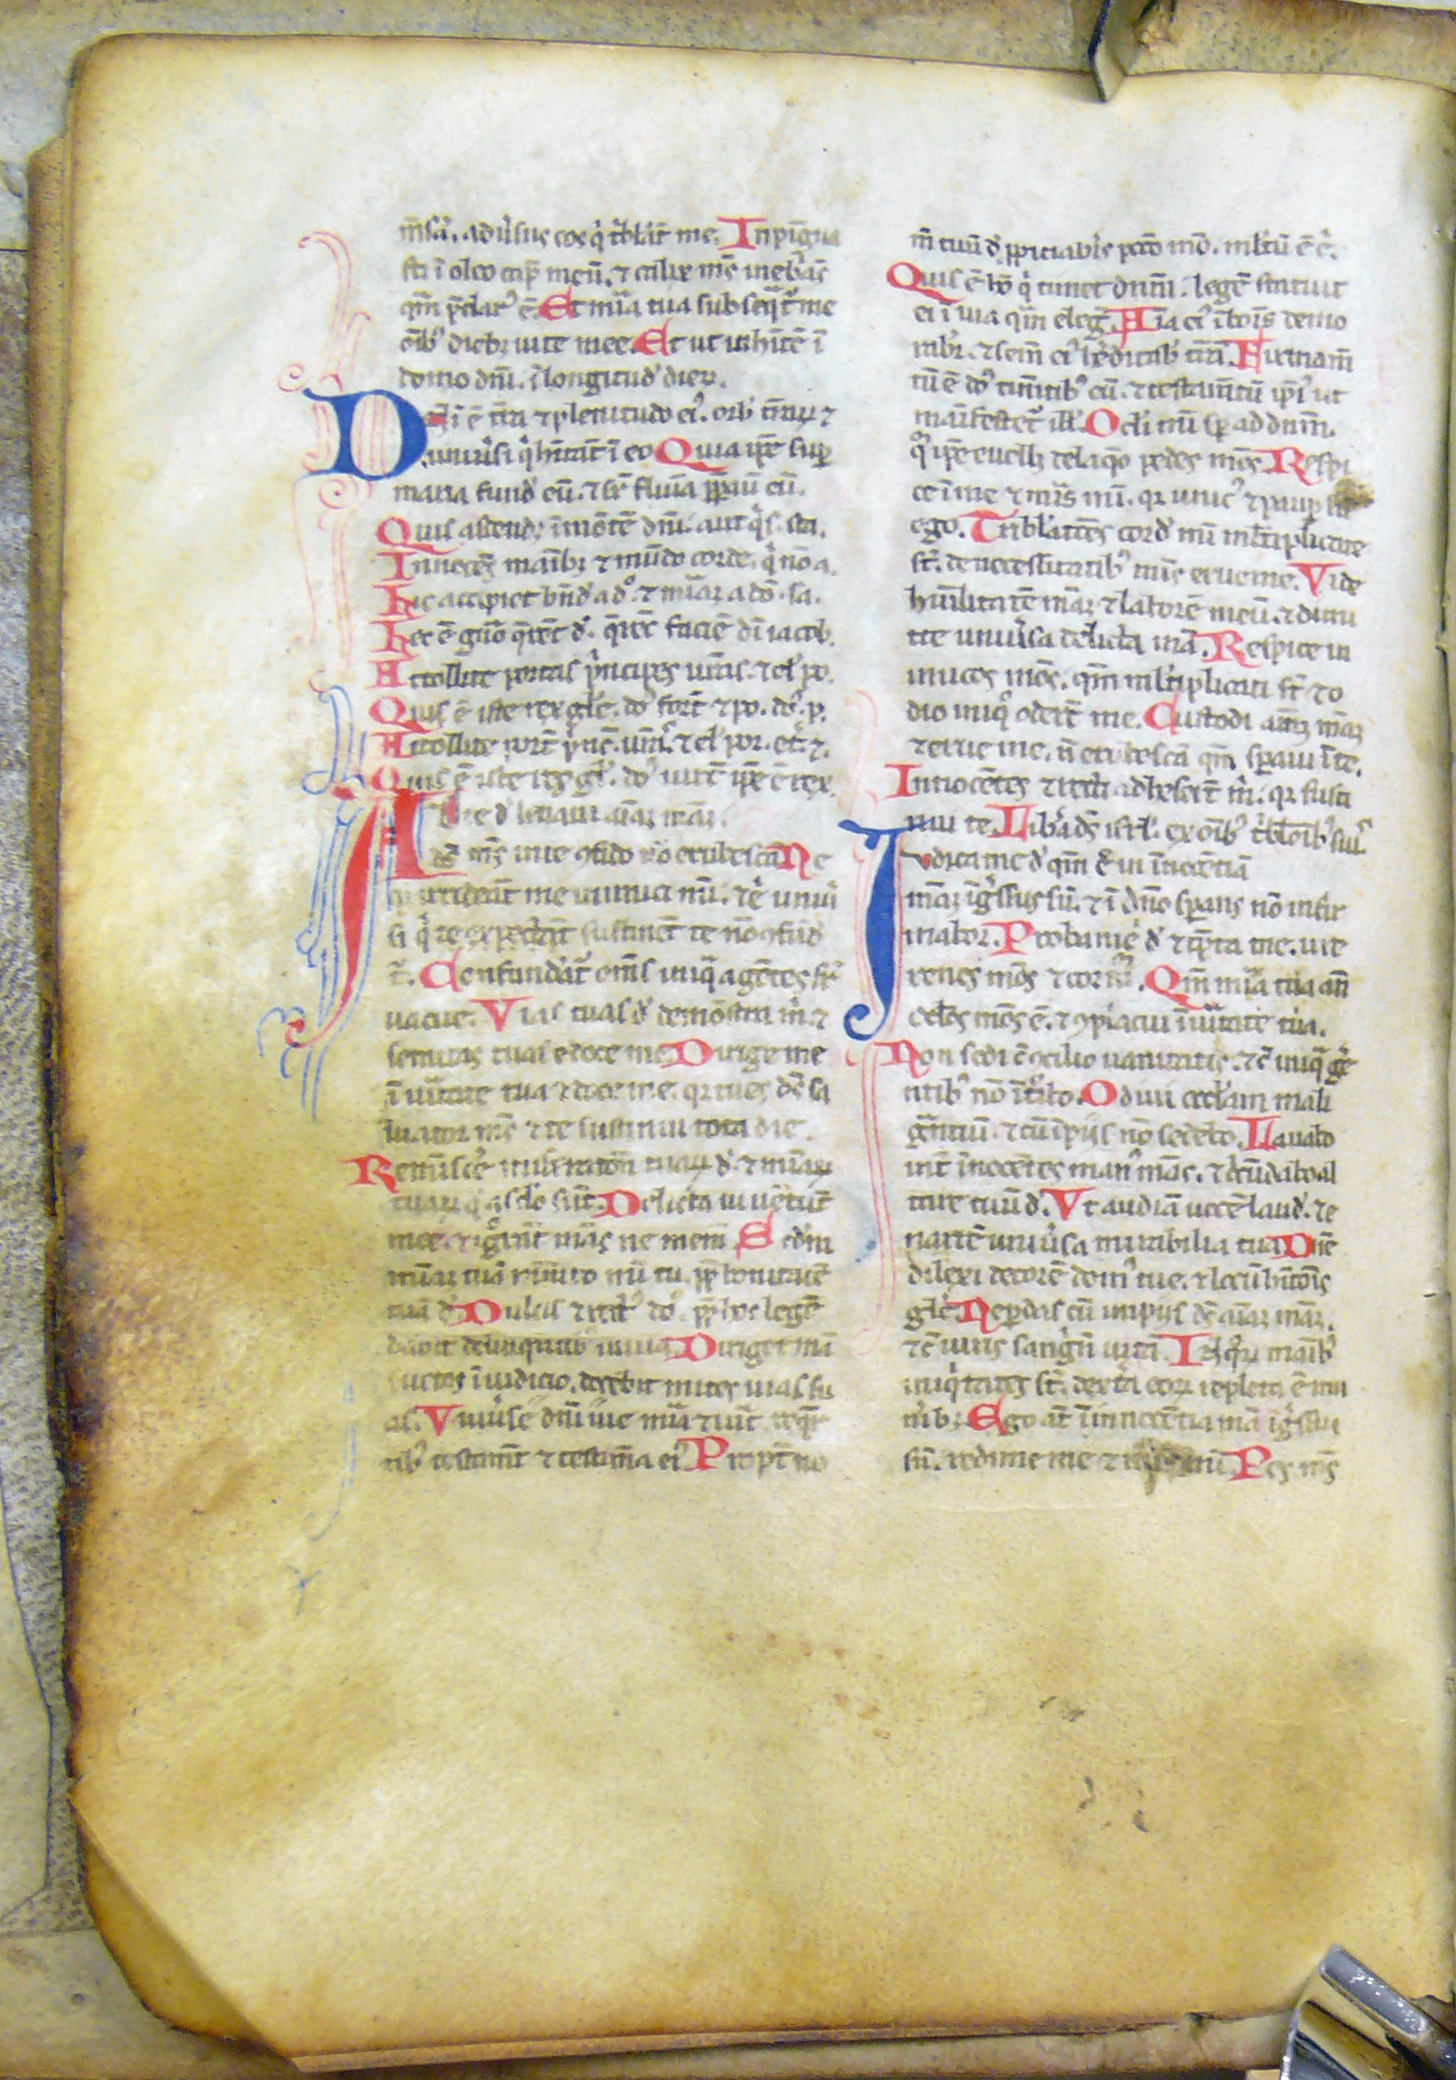 m̄sā. adūsus eos q̇ t̄blāt me. Inpīgua
sti ī oleo cap̄ meū. ⁊ calix mē inebͥās
qm̄ p̄clarꝰ ē. Et mīa tua subseq̄t̄ me
oīb; diebꝫ uite mee. Et ut inhītē ī
domo dn̄i. ī longitud̄ dieꝝ.
Dn̄i ē tr̄a ⁊ plenitudo eiꝰ. orb̄ tr̄aꝝ ⁊
uniūsi q̇ hītāt ī eo Quia ip̄e suꝑ
maria fund̄ eū. ⁊ suꝑ flūia p̄paū eū.
Quis ascend; ī mōtē dn̄i. aut q̇s. sta.
Innocēs maībꝫ ⁊ mūdo corde. q̇ nō a.
hic accipiet bn̄d̄ a dō. ⁊ mīaꝫ a dō. sa.
hec ē gn̄o q̄rēt̄ d̄. q̄rēt̄ faciē dī iacob.
Attollite portas p̄ncipes ur̄as. ⁊ el̄ po.
Quis ē iste rex gl̄e. dō fort̄ ⁊ po. dō. p.
Attollite port̄ p̄nc̄. ur̄as. ⁊ el̄ por. et̄. ⁊.
Quis ē iste rex gl̄. dō uirt̄ ip̄e ē rex.
Ad te d̄ leuaui aīaꝫ meā.
Ds̄ mē in te ꝯfido nō erubescā Ne
irrideāt me inimici mī. ⁊ē uniū
si q̇ te expectāt sustinēt te nō ꝯfūd
t̄. Confundāt̄ om̄s iniq̄ agētes suꝑ
uacue. Vias tuas d̄ demōstra m̄. ⁊
semitas tuas edoce me Dirige me
ī uītate tua ⁊ doce me. qꝛ tu es dē sa
luator mē ⁊ te sustinui tota die.
Remīscē miserationū tuaꝝ d̄. ⁊ mīaꝝ
tuaꝝ q̄ a sclo sūt. Delicta iuuētut̄
mee. ⁊ igrāt̄ mās ne memī Scd̄m
mīaꝫ tuā memto mī tu. ꝓp̄ bonitatē
tuā d̄ Dulcis ⁊ rectꝰ dō. ꝓp̄ hoc legē
dabit delinquētib; ī uia Diriget mā
suetos ī iudicio. docebit mites uias su
as. Vniūse dn̄i uie mīa ⁊ uīt̄ reqͥr
tib; testam̄t ⁊ testim̄a eiꝰ Propt̄ no
m̄ tuū d̄ ꝓpiciab̄is pctō mō. mltū ē ē.
Quis ē hō q̇ timet dnm̄. legē statuit
ei ī uia qm̄ eleḡ. Aīa eiꝰ ī bōis demo
rabꝛ. ⁊ sem̄ eiꝰ hēditab; trā. Firmam̄
tū ē dō timētib; eū. ⁊ testam̄tū ip̄iꝰ ut
manifestet̄ ill̄. Ocl̄i mī sꝑ ad dnm̄.
qm̄ ip̄e euell; de laq̄o pedes mōs Respi
ce ī me ⁊ mis̄ mī. qꝛ unicꝰ ⁊ paup̄
ego. Tribl̄atōes cord̄ mī mltiplicate
st̄. de necessitatib; mīs erue me. Vide
hūilitatē mēaꝫ ⁊ laborē meū. ⁊ dimi
tte uniūsa delicta mā. Respice in
imicos mōs. qm̄ mltiplicati st̄ ⁊ o
dio iniq̄ oderūt̄ me. Custodi aīaꝫ meaꝫ
⁊ erue me. n̄ erubescā qm̄ sꝑaui ī te.
Innocētes ⁊ recti adheserūt̄ m̄. qꝛ susti
nui te. Libā dē isrl̄. ex oīb; tribl̄oīb; suis
Iudica me d̄ qm̄ ē in īnocētiā
meāꝫ īgssus sū. ⁊ ī dn̄o sꝑans nō infir
mabor. Proba me d̄ ⁊ tēpta me. ure
renes mōs ⁊ cor mē. Qm̄ mīa tua an̄
oclōs mōs ē. ⁊ ꝯplacui ī uītate tua.
Non sedi ī ꝯcilio uanitatis. ⁊ cū iniq̄ gē
ntib; nō ītrōibo. Odiui eccl̄am mali
gnātiū. ⁊ cū īpiis nō sedebo. Lauabo
int̄ īnocētes manꝰ meās. ⁊ cīcūdabo al
tare tuū d̄. Vt audiā uocē laud̄. ⁊ e
narrē uniūsa mirabilia tua Dn̄e
dilexi decorē domꝰ tue. ⁊ locū hītōis
gl̄e Ne ꝑdas cū impiis dē aīaꝫ meaꝫ.
⁊ cū uiris sangn̄ uitā. In q̄ꝝ maīb;
iniq̇tates st̄. dext̄a eoꝝ repleta ē mu
n̄ibꝫ. Ego aūt̄ ī innocētia mā īgssus
sū. redime me ⁊ mī. Pes mē